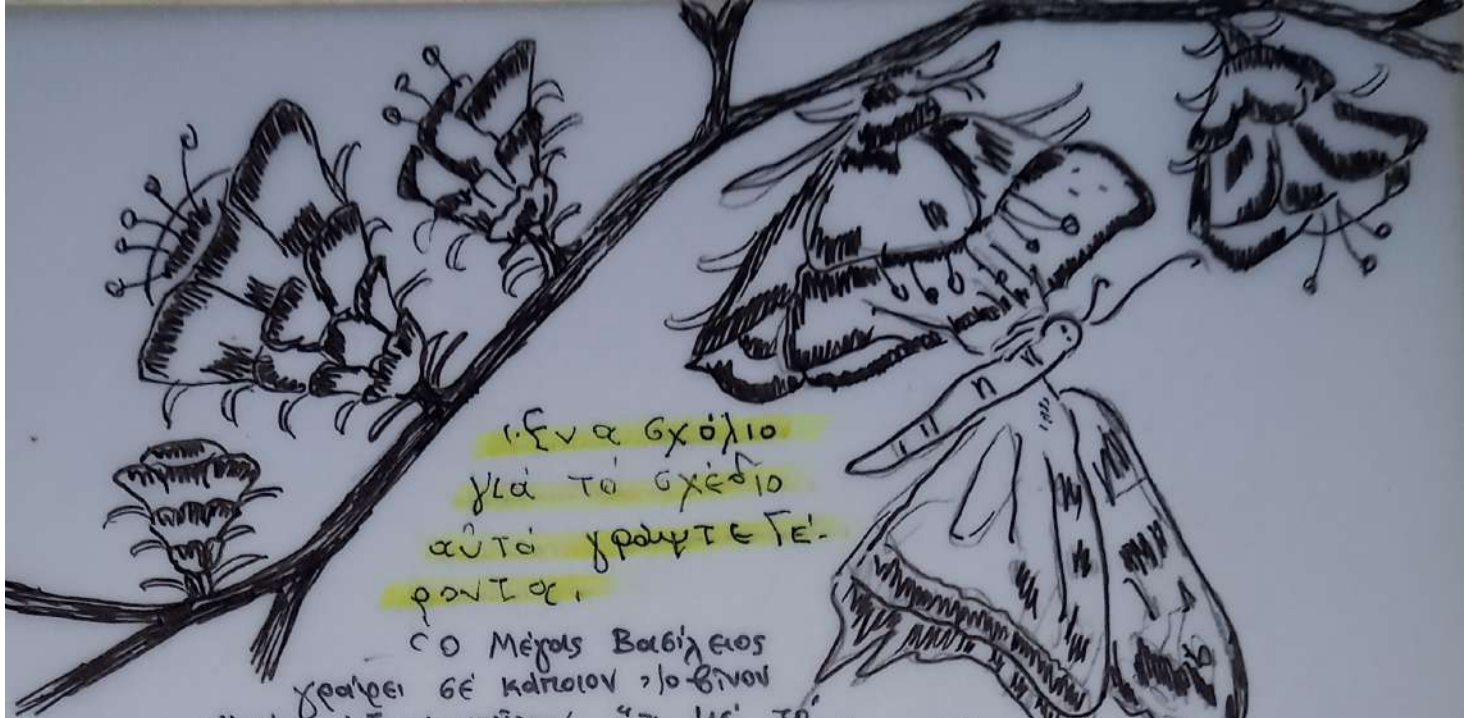 Ἕνα σχόλιο
γιά τό σχέδιο
αὐτό γράψτε Γέ-
ροντα.
Ὁ Μέγας Βασίλειος
γράφει σέ κάποιον Ἰοβῖνον